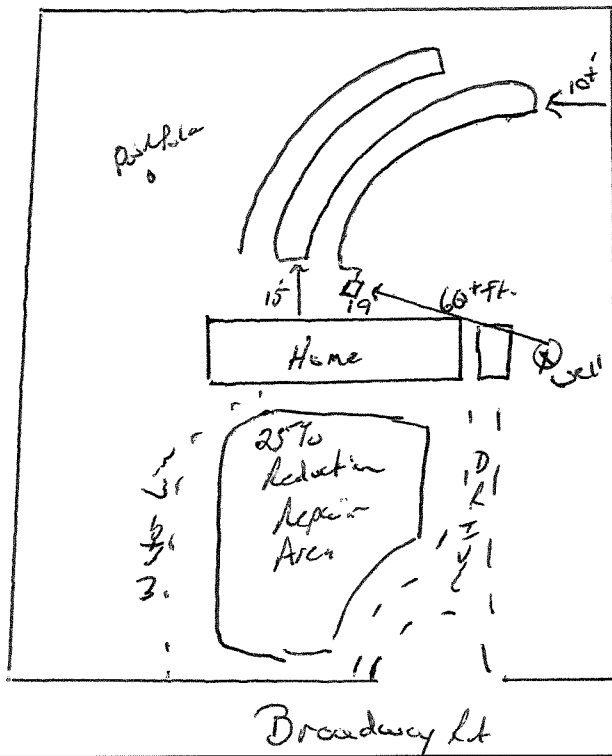 10+'
15'
19
60+ft.
Home
well
25%
Reduction
Repair
Area
DRIVE
Broadway